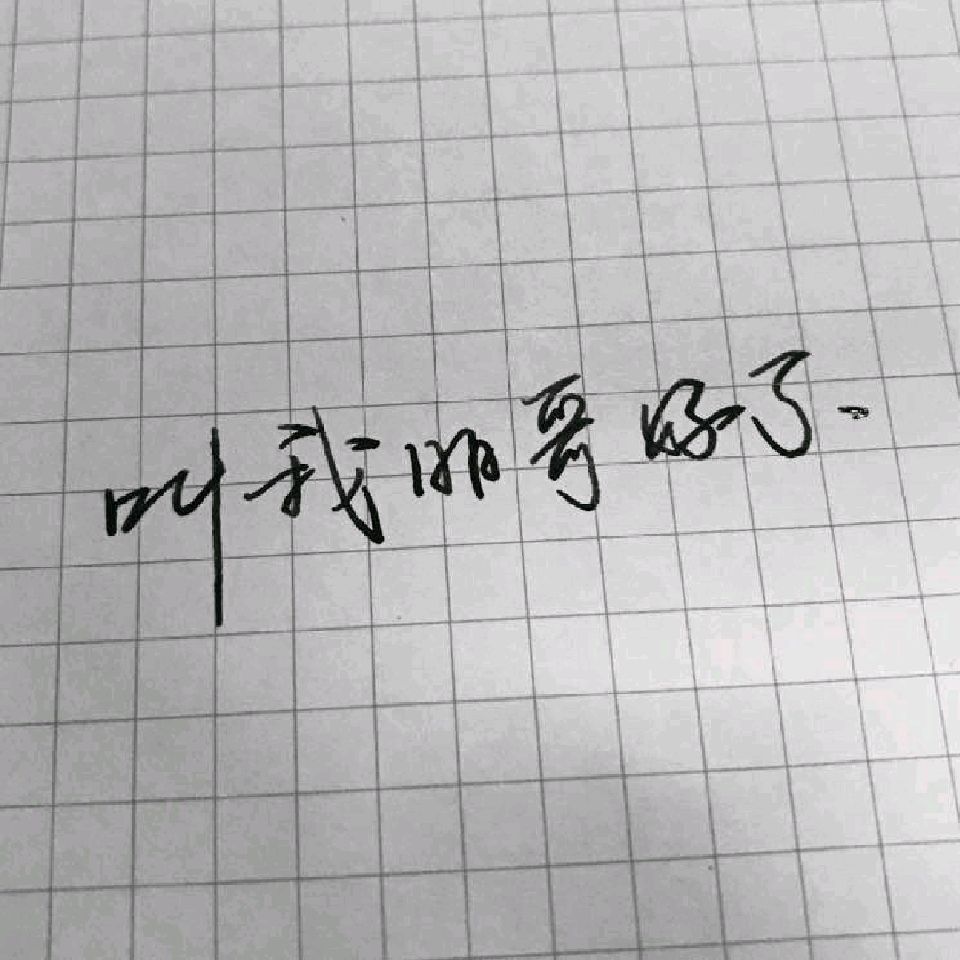 叫我哥好了.